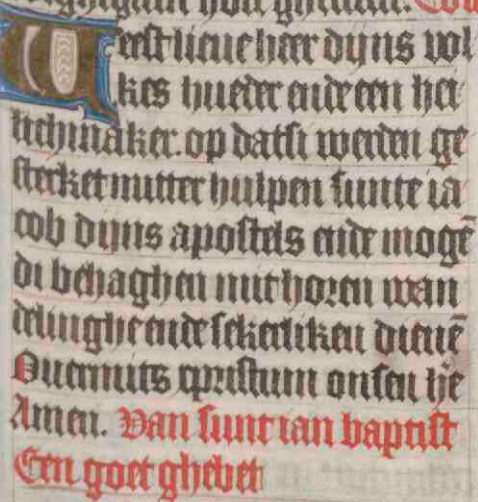 Weest lieue heer dijns vol
kes hueder ende een hei
lichmaker. op datsi werden ge
sterket mitter hulpen sunte ia
cob dijns apostels ende mogē
di behaghen mit horen wan
delinghe ende sekerliken dienē
Ouermits cpristum onsen he
Amen. Van sunt ian baptist
Een goet ghebet